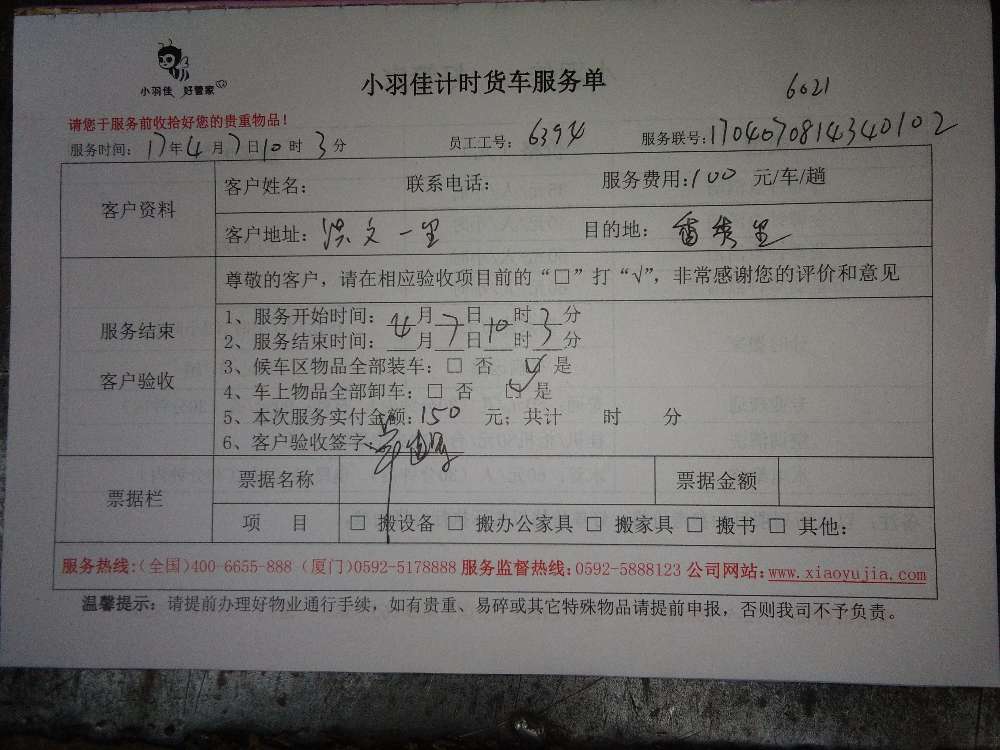 小羽佳 好管家
小羽佳计时货车服务单
6021
请您于服务前收拾好您的贵重物品!
服务时间: 17年4月7日10时3分 员工工号: 6394 服务联号:1704070814340102
客户资料
客户姓名: 联系电话: 服务费用:100 元/车/趟
客户地址: 洪文一里 目的地: 里
尊敬的客户，请在相应验收项目前的“□”打“√”，非常感谢您的评价和意见
服务结束
客户验收
1、服务开始时间: 4月7日10时3分
2、服务结束时间: 月 日 时 分
3、候车区物品全部装车: □ 否 ☑ 是
4、车上物品全部卸车: □ 否 ☑ 是
5、本次服务实付金额:150 元; 共计 时 分
6、客户验收签字:
票据栏
票据名称 票据金额
项 目 □ 搬设备 □ 搬办公家具 □ 搬家具 □ 搬书 □ 其他:
服务热线:(全国)400-6655-888 (厦门)0592-5178888 服务监督热线:0592-5888123 公司网站:www.xiaoyujia.com
温馨提示: 请提前办理好物业通行手续，如有贵重、易碎或其它特殊物品请提前申报，否则我司不予负责。